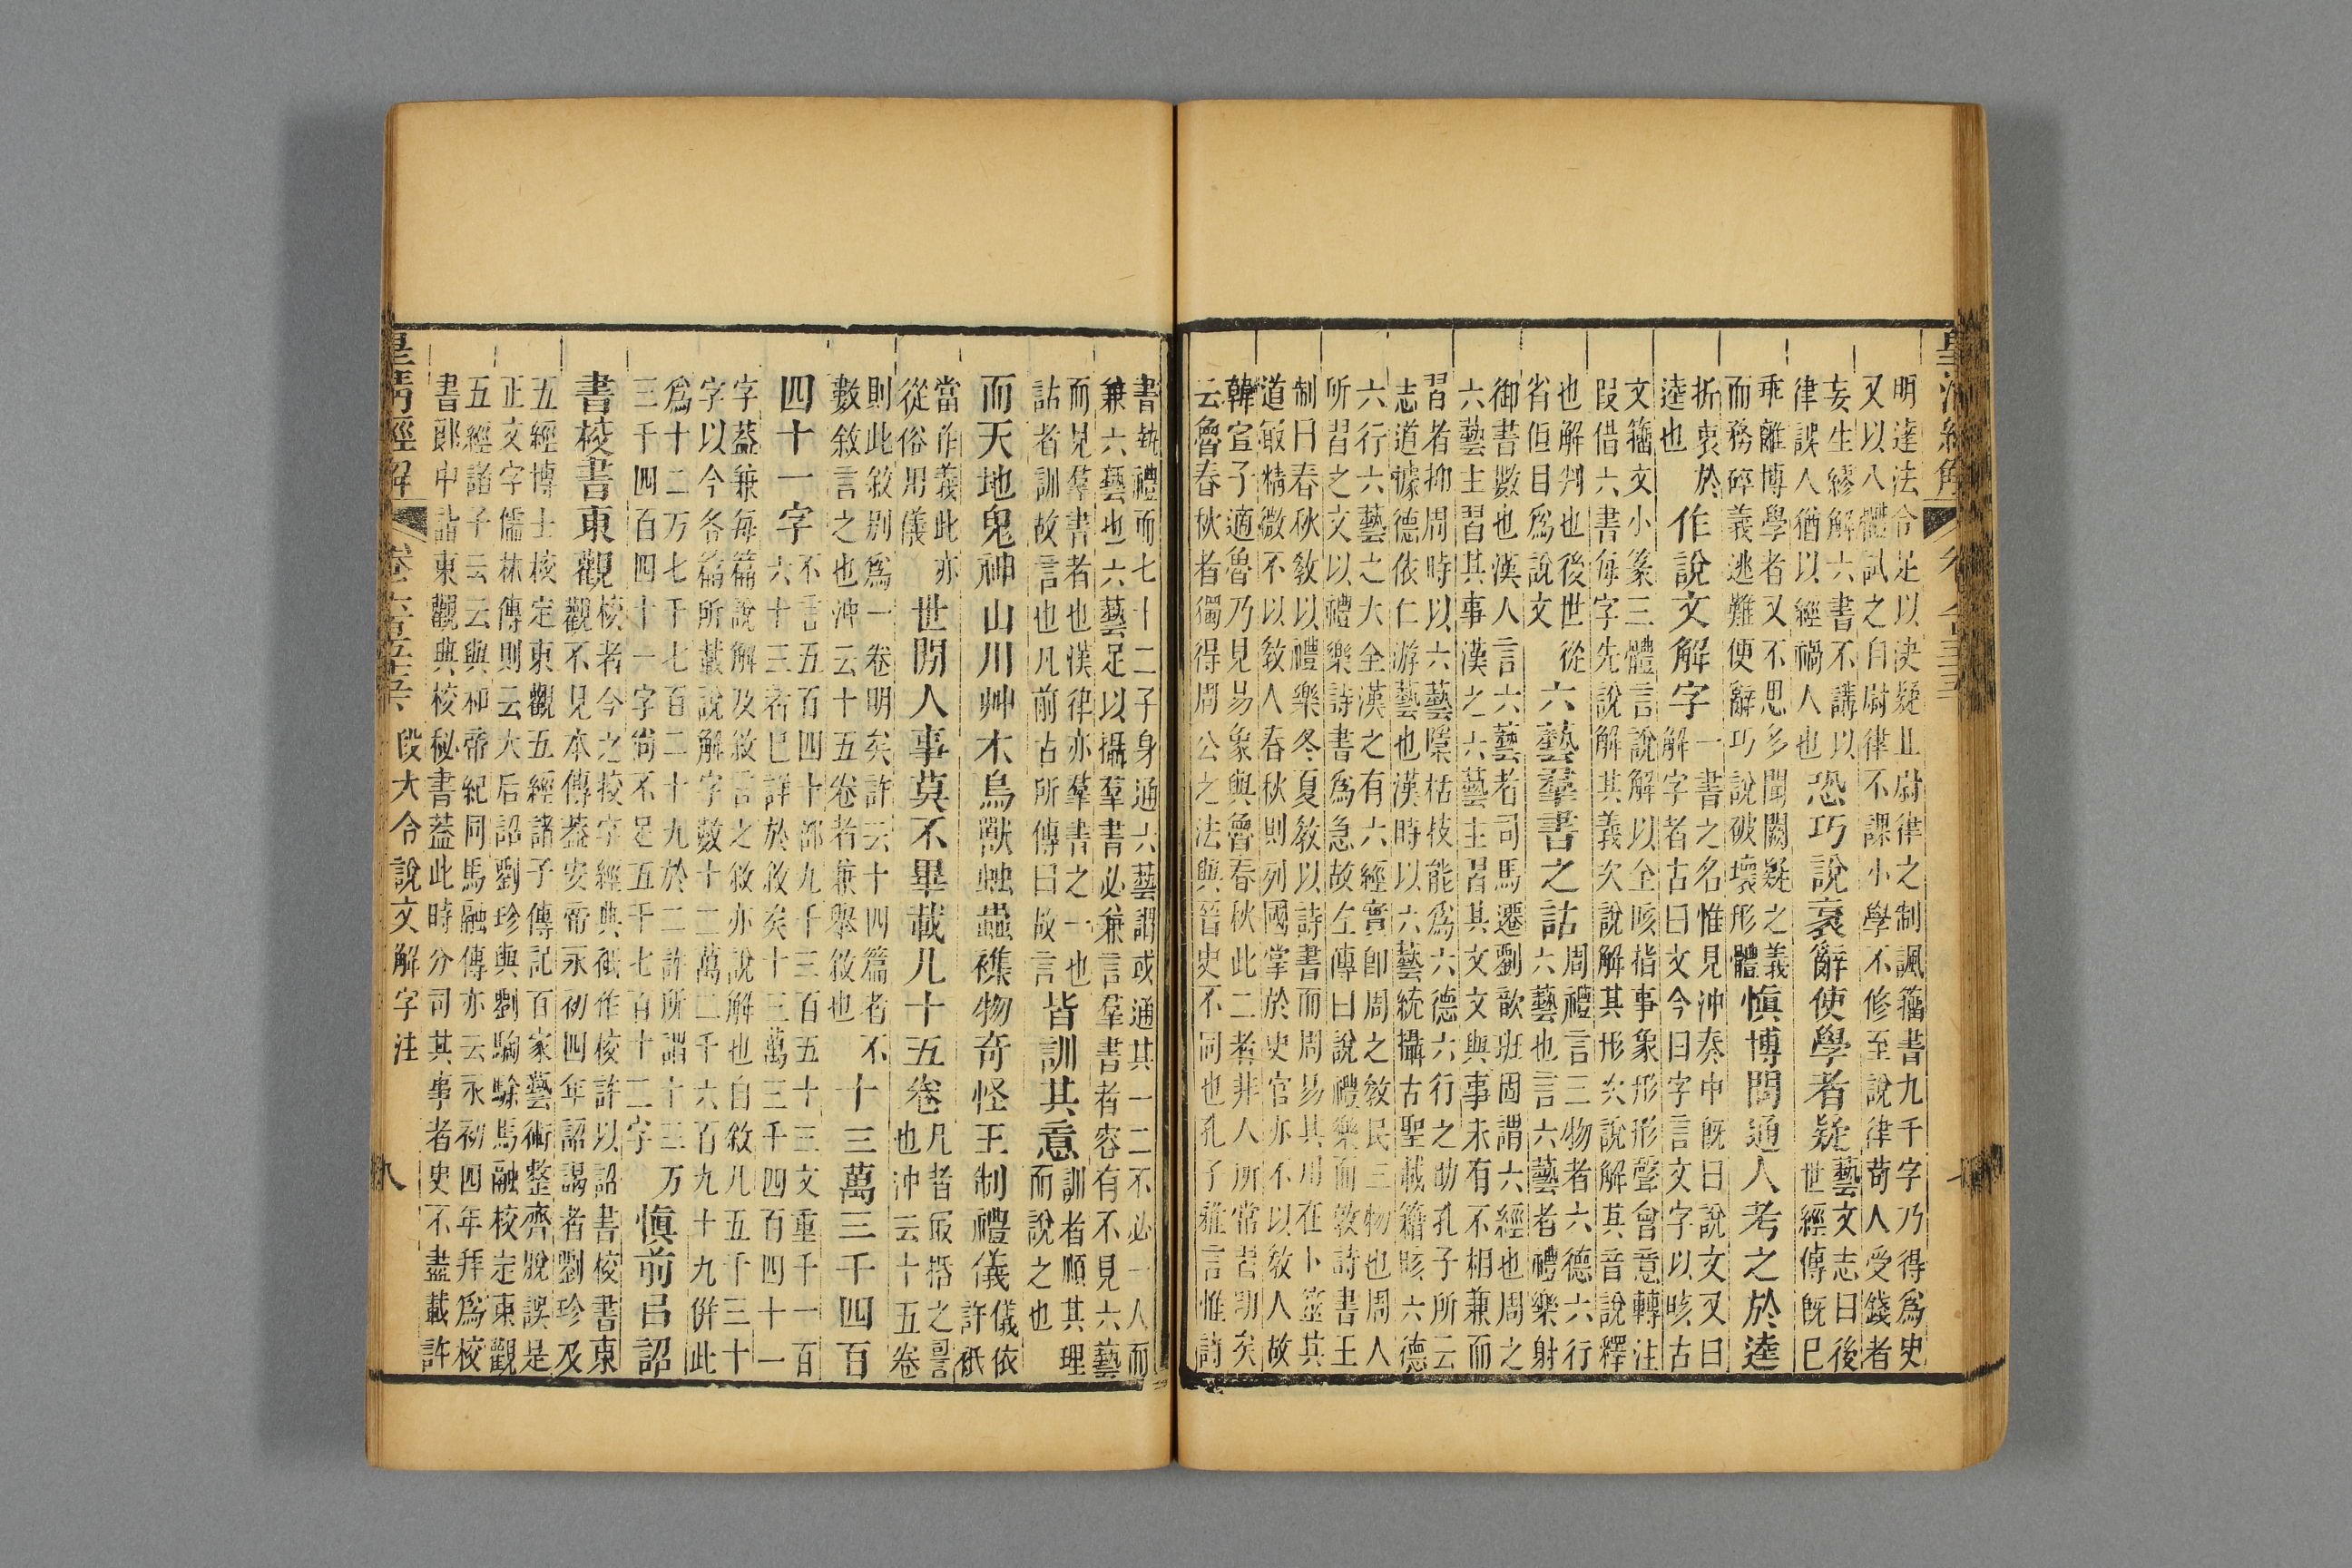 皇清經解
明達法令足以決疑且尉律之制諷籀書九千字乃得爲史
又以八體試之自尉律不課小學不修至說律苟人受錢者
妄生繆解六書不講以
律誤人猶以經禍人也
恐巧說衺辭使學者疑
藝文志曰後
世經傳旣巳
乖離博學者又不思多聞闕疑之義
而務碎義逃難便辭巧說破壞形體
愼博問通人考之於逵
折衷於
逵也
作說文解字
一書之名惟見沖奏中旣曰說文又曰
解字者古曰文今曰字言文字以晐古
文籀文小篆三體言說解以全晐指事象形形聲會意轉注
叚借六書每字先說解其義次說解其形次說解其音說釋
也解判也後世從
省但目爲說文
六藝羣書之詁
周禮言三物者六德六行
六藝也言六藝者禮樂射
御書數也漢人言六藝者司馬遷劉歆班固謂六經也周之
六藝主習其事漢之六藝主習其文文與事未有不相兼而
習者抑周時以六藝隱栝技能爲六德六行之助孔子所云
志道據德依仁游藝也漢時以六藝統攝古聖載籍晐六德
六行六藝之大全漢之有六經實卽周之敎民三物也周人
所習之文以禮樂詩書爲急故左傳曰說禮樂而敦詩書王
制曰春秋敎以禮樂冬夏敎以詩書而周易其用在卜筮其
道冣精微不以敎人春秋則列國掌於史官亦不以敎人故
韓宣子適魯乃見易象與魯春秋此二者非人所常習明矣
云魯春秋者獨得周公之法與晉史不同也孔子雅言惟詩
書執禮而七十二子身通六藝謂或通其一二不必一人而
兼六藝也六藝足以攝羣書必兼言羣書者容有不見六藝
而見羣書者也漢律亦羣書之一也
詁者訓故言也凡前古所傳曰故言
皆訓其意
訓者順其理
而說之也
而天地鬼神山川艸木鳥獸䖵蟲襍物奇怪王制禮儀
儀依
許衹
當作義此亦
從俗用儀
世閒人事莫不畢載凡十五卷
凡者冣栝之䛐
也沖云十五卷
則此敘別爲一卷明矣許云十四篇者不
數敘言之也沖云十五卷者兼舉敘也
十三萬三千四百
四十一字
不言五百四十部九千三百五十三文重千一百
六十三者巳詳於敘矣十三萬三千四百四十一
字蓋兼每篇說解及敘言之敘亦說解也自敘凡五千三十
字以今各篇所載說解字數十二萬二千六百九十九併此
爲十二万七千七百二十九於二許所謂十三万
三千四百四十一字尙不足五千七百十二字
愼前㠯詔
書校書東觀
校者今之挍字經典衹作校許以詔書校書東
觀不見本傳葢安帝永初四年詔謁者劉珍及
五經博士校定東觀五經諸子傳記百家藝術整齊脫誤是
正文字儒林傳則云大后詔劉珍與劉騊駼馬融校定東觀
五經諸子云云與和帝紀同馬融傳亦云永初四年拜爲校
書郞中詣東觀典校秘書蓋此時分司其事者史不盡載許
皇清經解
段大令說文解字注
八